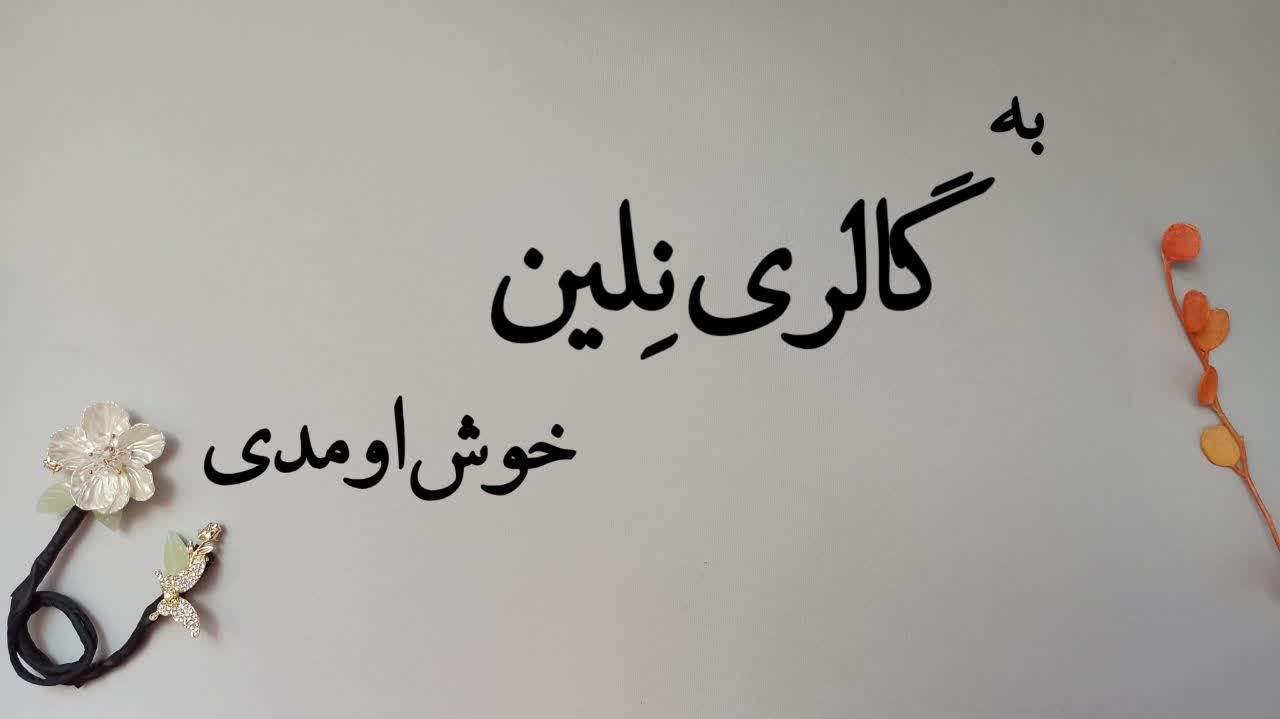 به
گالری نِلین
خوش اومدی